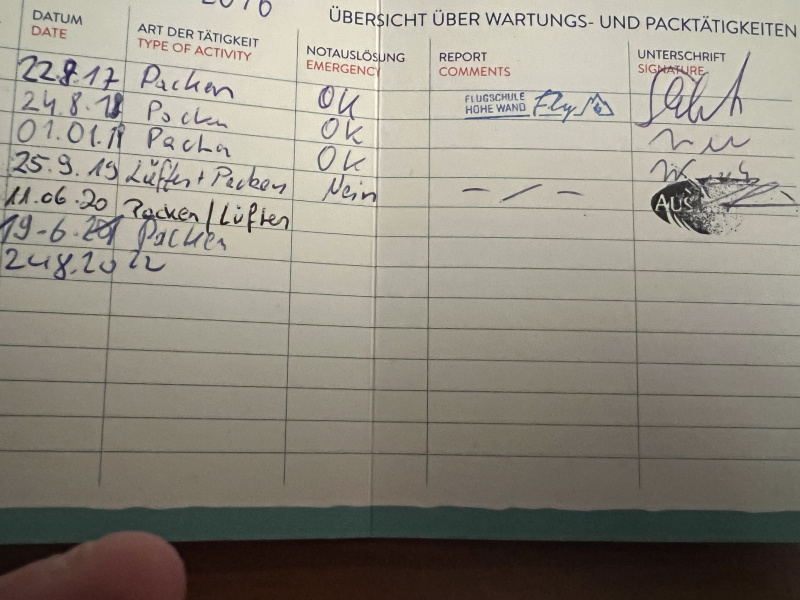 2016
ÜBERSICHT ÜBER WARTUNGS- UND PACKTÄTIGKEITEN
DATUM ART DER TÄTIGKEIT NOTAUSLÖSUNG REPORT UNTERSCHRIFT
DATE TYPE OF ACTIVITY EMERGENCY COMMENTS SIGNATURE
22.8.17 Packen OK FLUGSCHULE HOHE WAND Fly
24.8.18 Packen OK
01.01.19 Packen OK
25.9.19 Lüften + Packen Nein - / -
11.06.20 Packen / Lüften
19-6. Packen
24.8.2022